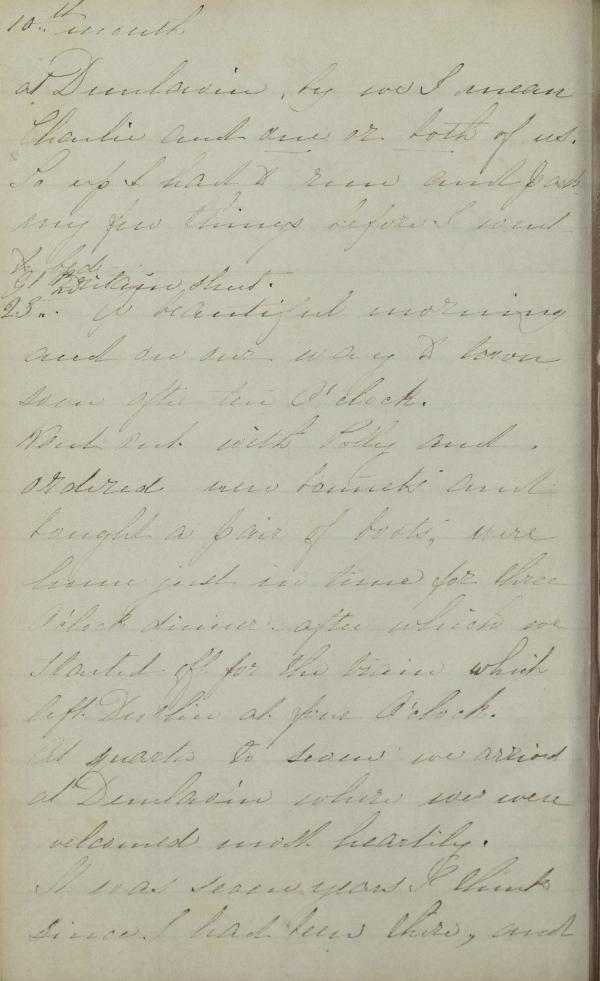 10th month
at Dunlavin, by we I mean
Charlie and one or both of us.
So up I had to run and pack
my few things before I went
to bed.
91 Britain street.
23.. A beautiful morning
and on our way to town
soon after ten O'clock.
Went out with Polly and
ordered new bonnets and
bought a pair of boots, were
home just in time for three
O'clock dinner. after which we
started off for the train which
left Dublin at five O'clock.
At quarter to seven we arrived
at Dunlavin where we were
welcomed most heartily.
It was seven years I think
since I had been there, and